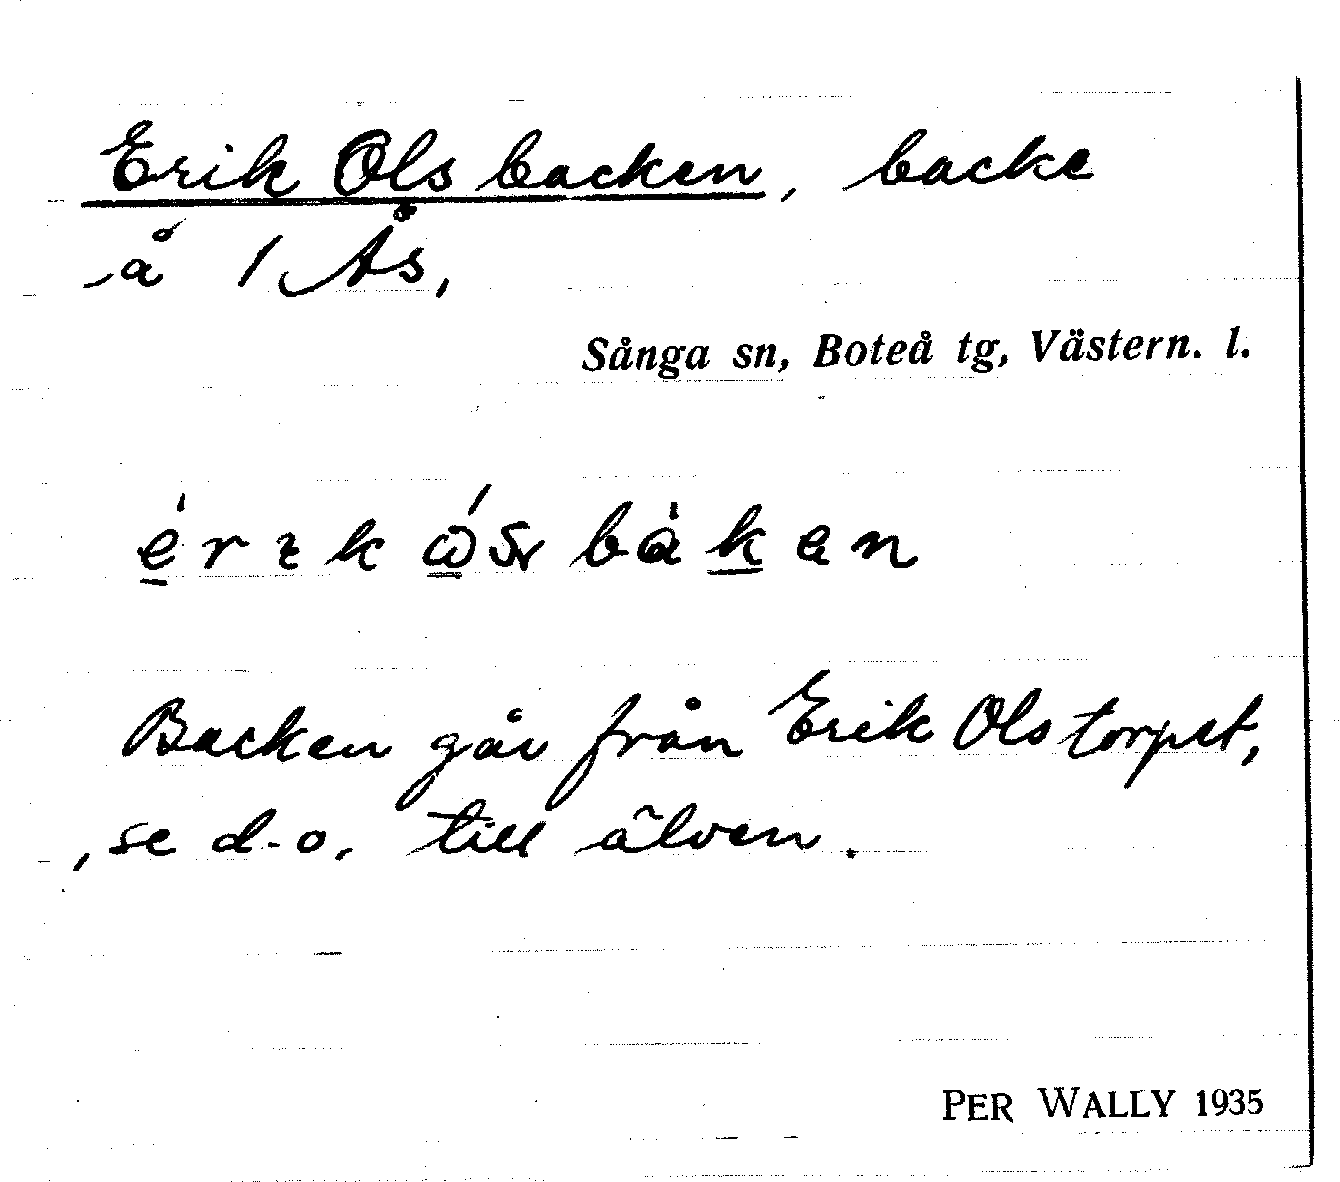 Erik Olsbacken, backe
å 1 Ås,
Sånga sn, Boteå tg, Västern. l.
Backen går från Erik Olstorpet,
se d.o. till älven.
PER WALLY 1935